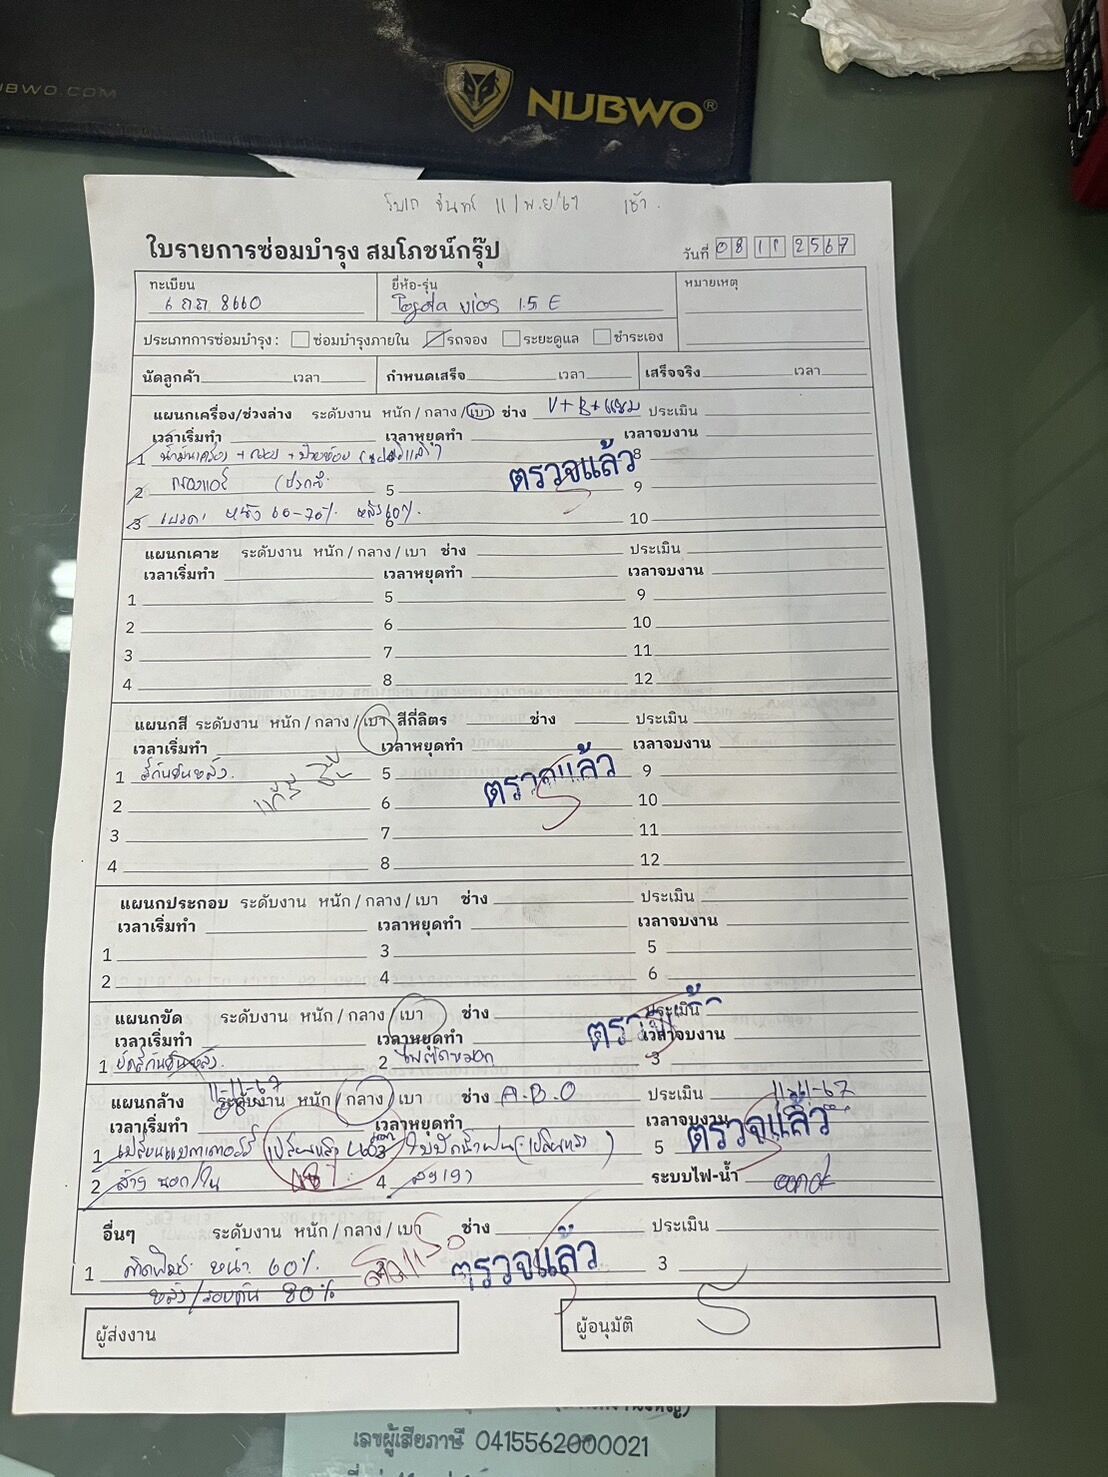 BWO.COM
NUBWO®
จันทร์ 11 / พ.ย.'67 เช้า.
ใบรายการซ่อมบำรุง สมโภชน์กรุ๊ป
วันที่ 08 11 2567
ทะเบียน 6 กภ 8660
ยี่ห้อ-รุ่น Toyota vios 1.5 E
หมายเหตุ
ประเภทการซ่อมบำรุง : ซ่อมบำรุงภายใน รถจอง ระยะดูแล ชำระเอง
นัดลูกค้า เวลา กำหนดเสร็จ เวลา เสร็จจริง เวลา
แผนกเครื่อง/ช่วงล่าง ระดับงาน หนัก / กลาง / เบา ช่าง V + B + แชม ประเมิน
เวลาเริ่มทำ เวลาหยุดทำ เวลาจบงาน
1 น้ำมันเครื่อง + กรอง 8
ตรวจแล้ว
2 กรองแอร์ 5 9
3 เบรค หน้า 60-70% หลัง 60% 6 10
แผนกเคาะ ระดับงาน หนัก / กลาง / เบา ช่าง ประเมิน
เวลาเริ่มทำ เวลาหยุดทำ เวลาจบงาน
1 5 9
2 6 10
3 7 11
4 8 12
แผนกสี ระดับงาน หนัก / กลาง / เบา สีกี่ลิตร ช่าง ประเมิน
เวลาเริ่มทำ เวลาหยุดทำ เวลาจบงาน
1 สีกันชนหลัง. 5 9
ตรวจแล้ว
2 6 10
3 7 11
4 8 12
แผนกประกอบ ระดับงาน หนัก / กลาง / เบา ช่าง ประเมิน
เวลาเริ่มทำ เวลาหยุดทำ เวลาจบงาน
1 3 5
2 4 6
แผนกขัด ระดับงาน หนัก / กลาง / เบา ช่าง ประเมิน
เวลาเริ่มทำ เวลาหยุดทำ เวลาจบงาน
1 ขัดสีกันชนหลัง. 2 ไฟตัดหมอก 3
11-11-67
แผนกล้าง ระดับงาน หนัก / กลาง / เบา ช่าง A.B.O ประเมิน 11-11-67
เวลาเริ่มทำ เวลาหยุดทำ เวลาจบงาน
1 เปลี่ยนแบตเตอรี่ 3 ใบปัดน้ำฝน 5
ตรวจแล้ว
2 ล้าง นอก/ใน 4 ระบบไฟ-น้ำ
อื่นๆ ระดับงาน หนัก / กลาง / เบา ช่าง ประเมิน
1 ติดฟิล์ม หน้า 60% 3
ตรวจแล้ว
หลัง/รอบคัน 80%
ผู้ส่งงาน
ผู้อนุมัติ
เลขผู้เสียภาษี 0415562000021